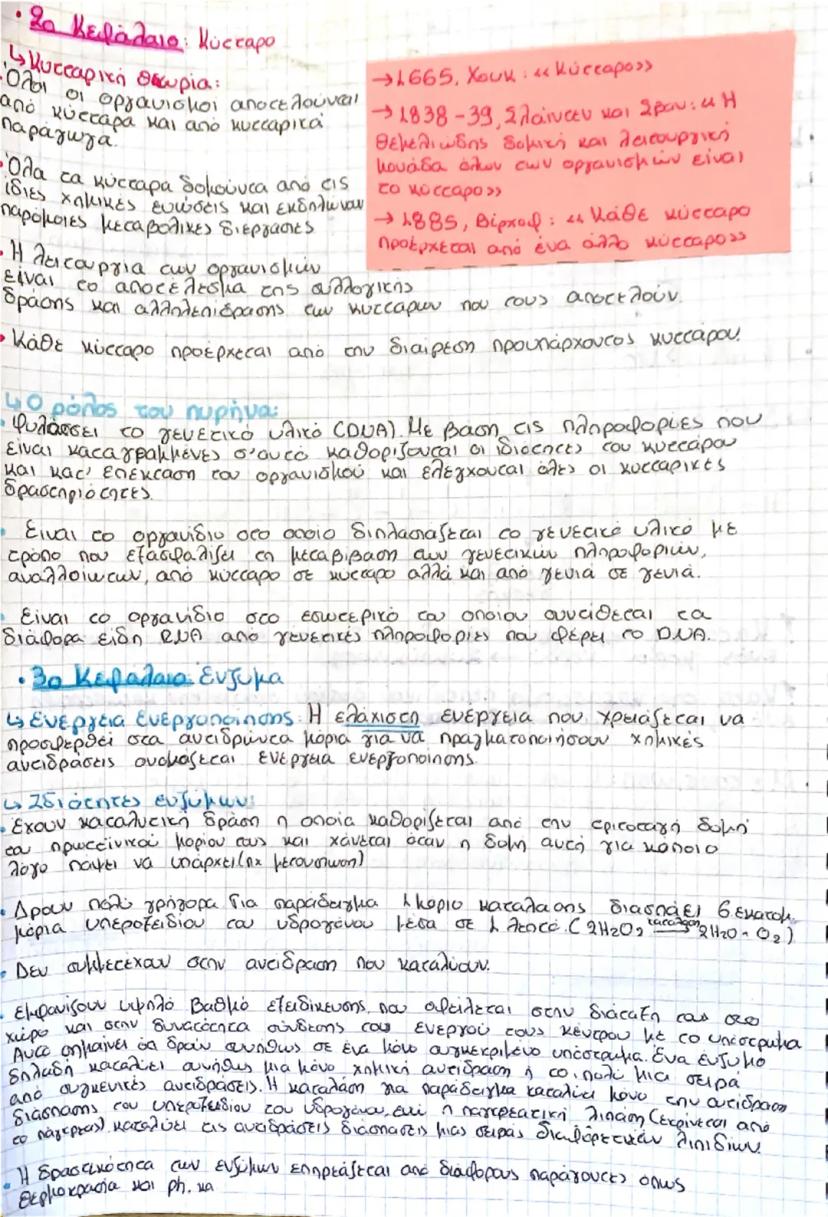 • 2ο Κεφάλαιο: Κύτταρο
↳ Κυτταρική θεωρία:
• Όλοι οι οργανισμοί αποτελούνται
από κύτταρα και από κυτταρικά
παράγωγα.
• Όλα τα κύτταρα δομούντα από τις
ίδιες χημικές ενώσεις και εκδηλώνουν
παρόμοιες μεταβολικές διεργασίες
• Η λειτουργία των οργανισμών
είναι το αποτέλεσμα της συλλογικής
δράσης και αλληλεπίδρασης των κυττάρων που τους αποτελούν.
• Κάθε κύτταρο προέρχεται από την διαίρεση προυπάρχοντος κυττάρου.
→ 1665, Χουκ: «Κύτταρο»
→ 1838-39, Σλάιντεν και Σβαν: «Η
θεμελιώδης δομική και λειτουργική
μονάδα όλων των οργανισμών είναι
το κύτταρο»
→ 1885, Βίρχοφ: «Κάθε κύτταρο
προέρχεται από ένα άλλο κύτταρο»
↳ Ο ρόλος του πυρήνα:
• Φυλάσσει το γενετικό υλικό (DNA). Με βαση τις πληροφορίες που
είναι καταγραμμένες σ'αυτό καθορίζονται οι ιδιότητες του κυττάρου
και κατ' επέκταση του οργανισμού και ελέγχονται όλες οι κυτταρικές
δραστηριότητες.
• Ειναι το οργανίδιο στο οποίο διπλασιάζεται το γενετικό υλικό με
τρόπο που εξασφαλίζει τη μεταβίβαση των γενετικών πληροφοριών,
αναλλοίωτων, από κύτταρο σε κύτταρο αλλά και από γενιά σε γενιά.
• Είναι το οργανίδιο στο εσωτερικό του οποίου συντίθεται τα
διάφορα είδη RNA από γενετικές πληροφορίες που φέρει το DNA.
• 3ο Κεφάλαιο: Ένζυμα
↳ Ενέργεια Ενεργοποίησης: Η ελάχιστη ενέργεια που χρειάζεται να
προσφερθεί στα αντιδρώντα μόρια για να πραγματοποιήσουν χημικές
αντιδράσεις ονομάζεται ενέργεια ενεργοποίησης.
↳ Ιδιότητες ενζύμων:
• Έχουν καταλυτική δράση η οποία καθορίζεται από την τριτοταγή δομή
του πρωτεϊνικού μορίου τους και χάνεται όταν η δομή αυτή για κάποιο
λόγο πάψει να υπάρχει (πχ μετουσίωση)
• Δρουν πολύ γρήγορα. Για παράδειγμα 1 μόριο καταλάσης διασπάει 6 εκατομ.
μόρια υπεροξειδίου του υδρογόνου μέσα σε 1 λεπτό. (2H₂O₂ καταλάση→ 2H₂O + O₂)
• Δεν συμμετέχουν στην αντίδραση που καταλύουν.
• Εμφανίζουν υψηλό βαθμό εξειδίκευσης, που οφείλεται στην διάταξη τους στο
χώρο και στην δυνατότητα σύνδεσης του ενεργού τους κέντρου με το υπόστρωμα
Αυτό σημαίνει ότι δρουν συνήθως σε ένα μόνο συγκεκριμένο υπόστρωμα. Ένα ένζυμο
δηλαδή καταλύει συνήθως μια μόνο χημική αντίδραση ή το πολύ μια σειρά
από συγγενικές αντιδράσεις. Η καταλάση για παράδειγμα καταλύει μόνο την αντίδραση
διάσπασης του υπεροξειδίου του υδρογόνου, ενώ η παγκρεατική λιπάση (εκρίνεται από
το πάγκρεας) καταλύει τις αντιδράσεις διάσπασεις μιας σειράς διαφορετικών λιπιδίων.
• Η δραστικότητα των ενζύμων επηρεάζεται από διάφορους παράγοντες όπως
θερμοκρασία και ph. κα